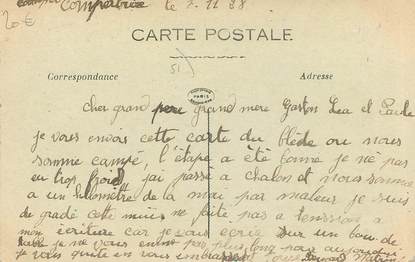 le 2.11 88
20€
CARTE POSTALE
51
Correspondance Adresse
cher grand pere grand mere Gaston Lea et Paule
je vous envois cette carte du blède ou nous
somme campé, l'étape a été bonne je ne pas
eu trop froid jai passé a chalon et nous somme
a un kilomètre de la par maleur je suis
de gradé cette ne faite pas a tenssion a
mon écriture car je vous ecris sur un bou de
je ne vous en plus long pour
je vous quite en vous